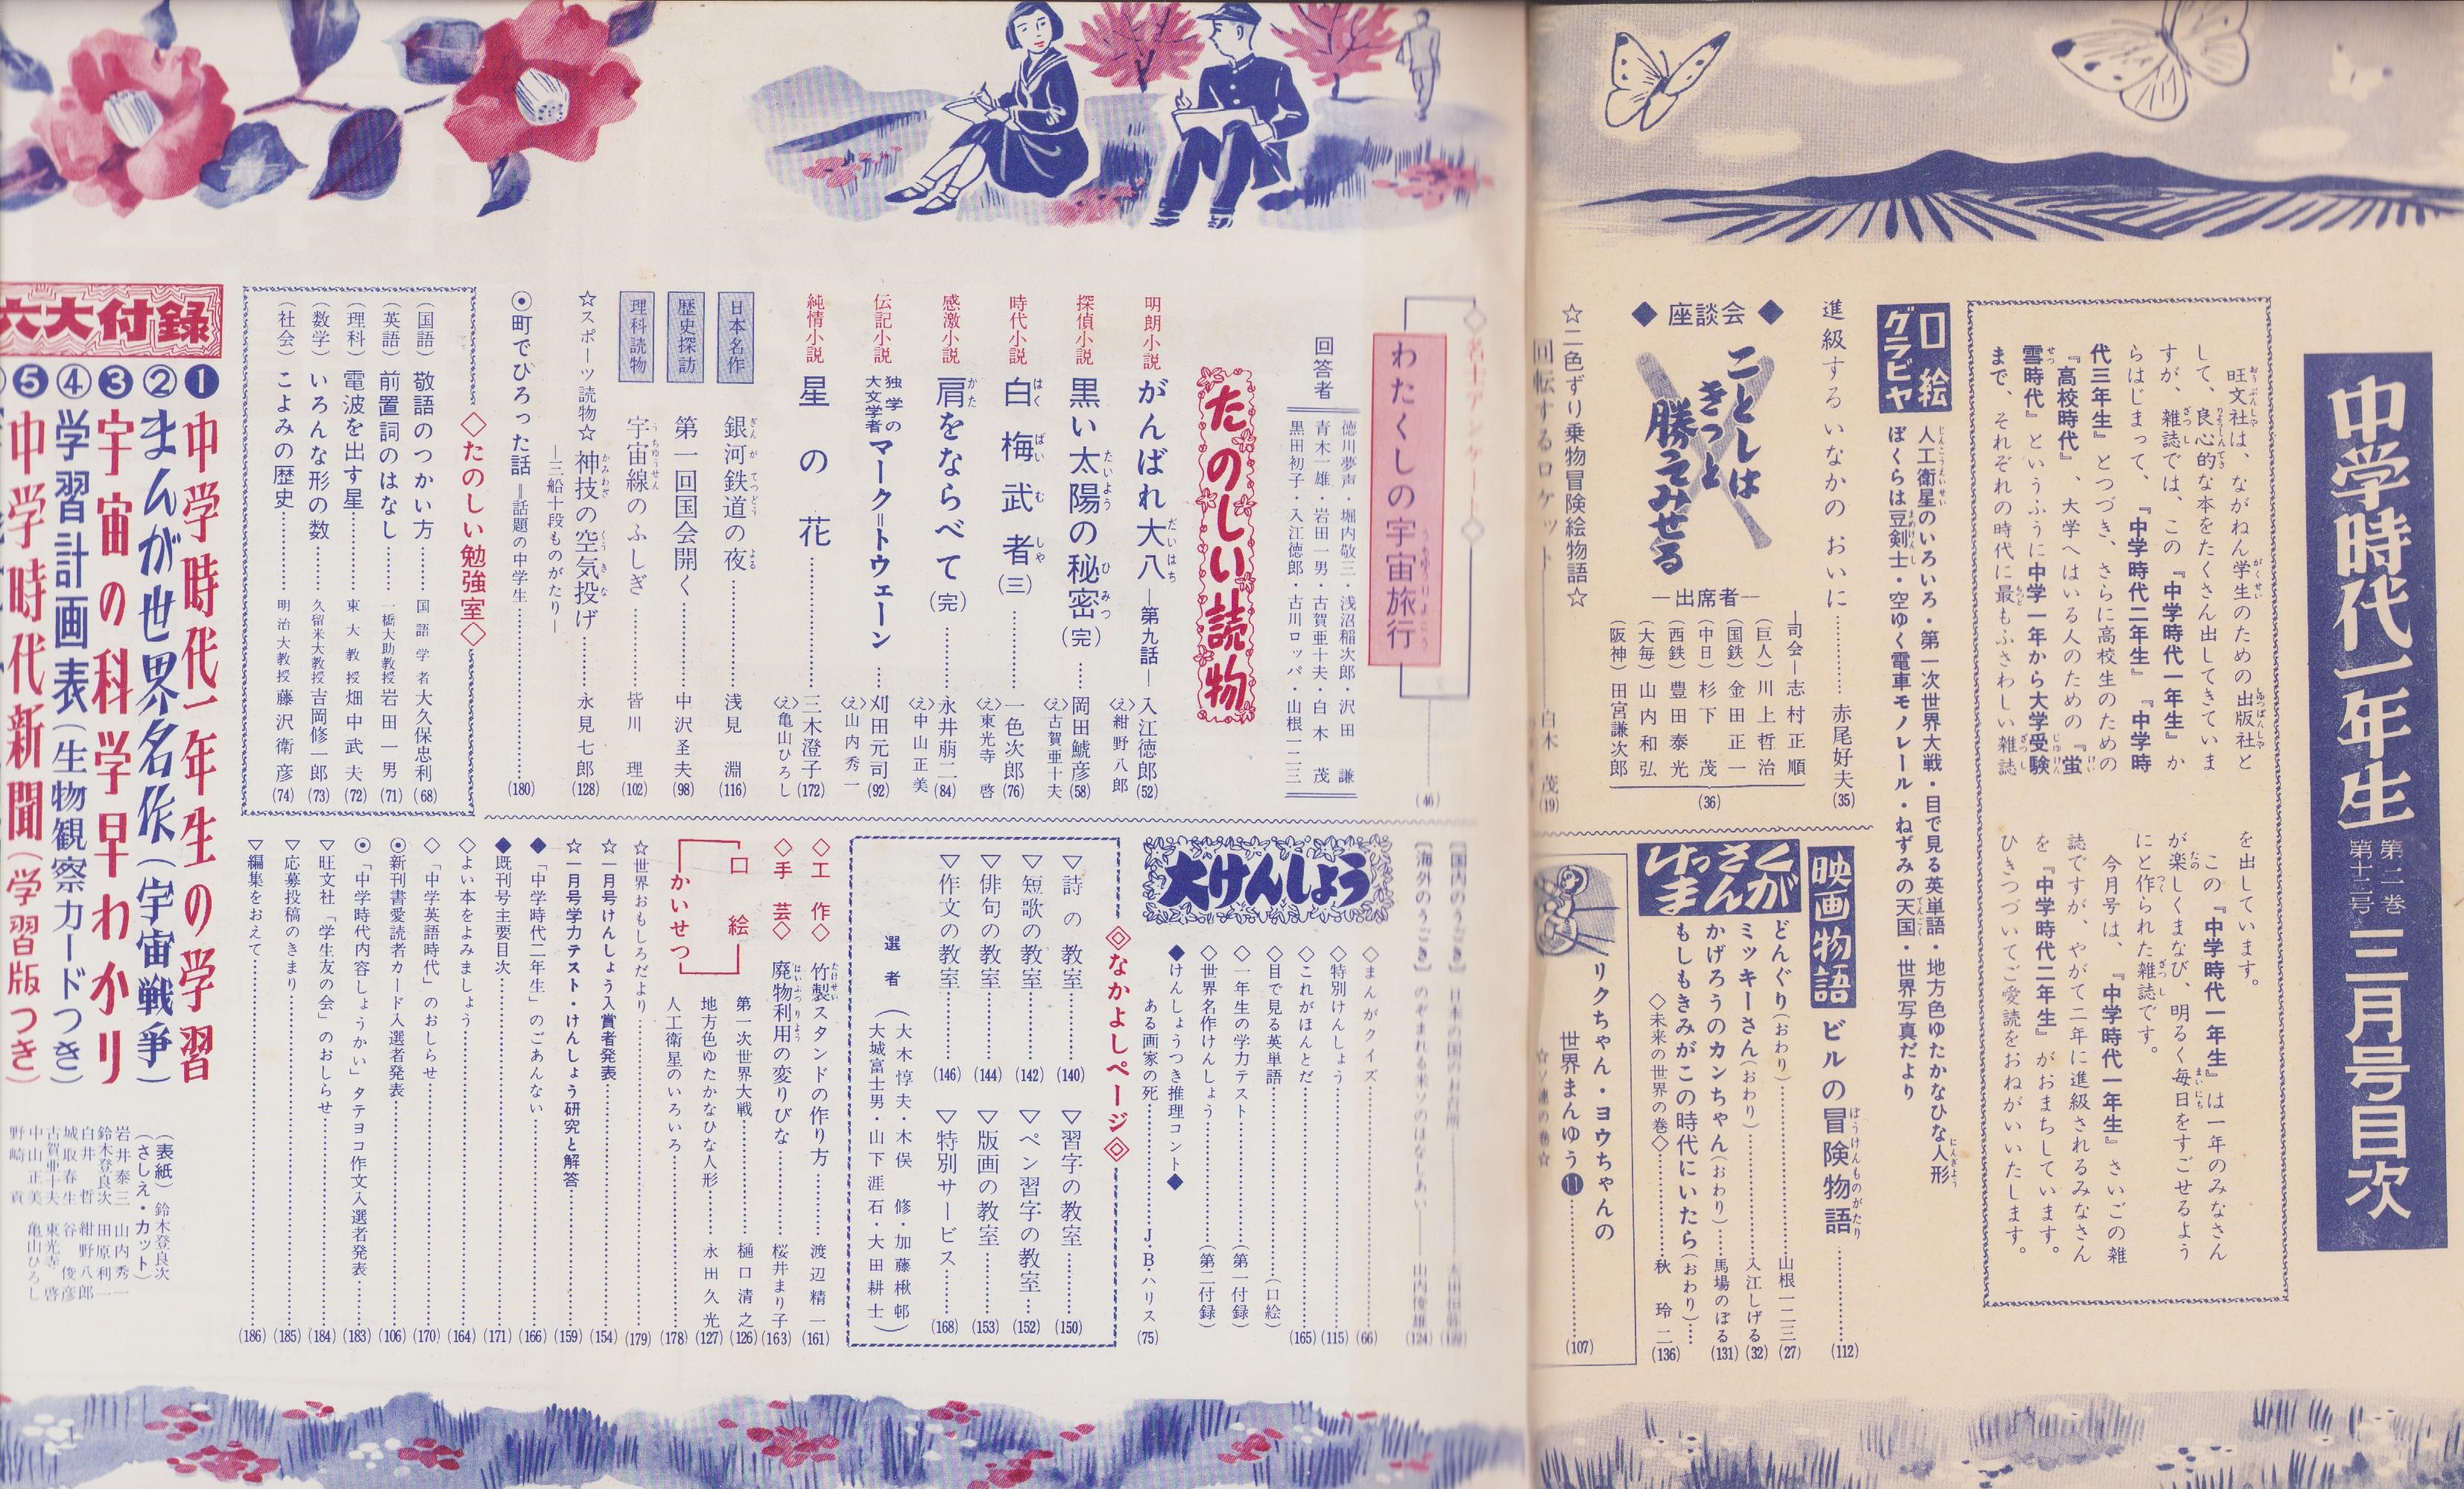 中学時代一年生 第二巻 第十二号 三月号目次
旺文社は、ながねん学生のための出版社と
して、良心的な本をたくさん出してきていま
すが、雑誌では、この『中学時代一年生』か
らはじまって、『中学時代二年生』『中学時
代三年生』とつづき、さらに高校生のための
『高校時代』、大学へはいる人のための『螢
雪時代』というふうに中学一年から大学受験
まで、それぞれの時代に最もふさわしい雑誌
を出しています。
この『中学時代一年生』は一年のみなさん
が楽しくまなび、明るく毎日をすごせるよう
にと作られた雑誌です。
今月号は、『中学時代一年生』さいごの雑
誌ですが、やがて二年に進級されるみなさん
を『中学時代二年生』がおまちしています。
ひきつづいてご愛読をおねがいいたします。
口絵
グラビヤ
人工衛星のいろいろ・第一次世界大戦・目で見る英単語・地方色ゆたかなひな人形
ぼくらは豆剣士・空ゆく電車モノレール・ねずみの天国・世界写真だより
進級するいなかの おいに……赤尾好夫(35)
◆座談会◆
ことしは
きっと
勝ってみせる
―出席者―
―司会―志村正順
(巨人)川上哲治
(国鉄)金田正一
(中日)杉下茂
(西鉄)豊田泰光
(大毎)山内和弘
(阪神)田宮謙次郎
(36)
☆二色ずり乗物冒険絵物語☆
回転するロケット……白木茂(19)
映画物語 ビルの冒険物語……(112)
けっさく
まんが
どんぐり(おわり)……山根一二三(27)
ミッキーさん(おわり)……入江しげる(32)
かげろうのカンちゃん(おわり)……馬場のぼる(131)
もしもきみがこの時代にいたら(おわり)……
◇未来の世界の巻◇……秋玲二(136)
リクちゃん・ヨウちゃんの
世界まんゆう⓫……(107)
☆ソ連の巻☆
◇名士アンケート◇
わたくしの宇宙旅行……(46)
回答者
徳川夢声・堀内敬三・浅沼稲次郎・沢田謙
青木一雄・岩田一男・古賀亜十夫・白木茂
黒田初子・入江徳郎・古川ロッパ・山根一二三
たのしい読物
明朗小説 がんばれ大八―第九話― 入江徳郎(52)
〈え〉紺野八郎
探偵小説 黒い太陽の秘密(完)……岡田鯱彦(58)
〈え〉古賀亜十夫
時代小説 白梅武者(三)……一色次郎(76)
〈え〉東光寺啓
感激小説 肩をならべて(完)……永井萠二(84)
〈え〉中山正美
伝記小説 独学の大文学者 マーク=トウェーン……刈田元司(92)
〈え〉山内秀一
純情小説 星の花……三木澄子(172)
〈え〉亀山ひろし
日本名作 銀河鉄道の夜……浅見淵(116)
歴史探訪 第一回国会開く……中沢圣夫(98)
理科読物 宇宙線のふしぎ……皆川理(102)
☆スポーツ読物☆ 神技の空気投げ……永見七郎(128)
―三船十段ものがたり―
◉町でひろった話=話題の中学生……(180)
◇たのしい勉強室◇
(国語)敬語のつかい方……国語学者 大久保忠利(68)
(英語)前置詞のはなし……一橋大助教授 岩田一男(71)
(理科)電波を出す星……東大教授 畑中武夫(72)
(数学)いろんな形の数……久留米大教授 吉岡修一郎(73)
(社会)こよみの歴史……明治大教授 藤沢衛彦(74)
[海外のうごき]のぞまれる米ソのはなしあい……山内俊雄(124)
大けんしょう
◇まんがクイズ……(66)
◇特別けんしょう……(115)
◇これがほんとだ……(165)
◇目で見る英単語……(口絵)
◇一年生の学力テスト……(第一付録)
◇世界名作けんしょう……(第二付録)
◆けんしょうつき推理コント◆
ある画家の死……J・B・ハリス(75)
◇なかよしページ◇
▽詩の教室……(140)
▽短歌の教室……(142)
▽俳句の教室……(144)
▽作文の教室……(146)
▽習字の教室……(150)
▽ペン習字の教室……(152)
▽版画の教室……(153)
▽特別サービス……(168)
選者(大木惇夫・木俣修・加藤楸邨
大城富士男・山下涯石・大田耕士)
◇工作◇ 竹製スタンドの作り方……渡辺精一(161)
◇手芸◇ 廃物利用の変りびな……桜井まり子(163)
口絵
かいせつ
第一次世界大戦……樋口清之(126)
地方色ゆたかなひな人形……永田久光(127)
人工衛星のいろいろ……(178)
☆世界おもしろだより……(179)
☆一月号けんしょう入賞者発表……(154)
☆一月号学力テスト・けんしょう研究と解答……(159)
◆『中学時代二年生』のごあんない……(166)
◆既刊号主要目次……(171)
◇よい本をよみましょう……(164)
◇「中学英語時代」のおしらせ……(170)
◉新刊書愛読者カード入選者発表……(106)
◉「中学時代内容しょうかい」タテヨコ作文入選者発表……(183)
▽旺文社「学生友の会」のおしらせ……(184)
▽応募投稿のきまり……(185)
▽編集をおえて……(186)
六大付録
❶中学時代一年生の学習
②まんが世界名作(宇宙戦争)
❸宇宙の科学早わかり
④学習計画表(生物観察カードつき)
❺中学時代新聞(学習版つき)
(表紙)鈴木登良次
(さしえ・カット)
岩井泰三 山内秀一
鈴木登良次 田原利一
白井哲 紺野八郎
城取春生 谷俊彦
古賀亜十夫 東光寺啓
中山正美 亀山ひろし